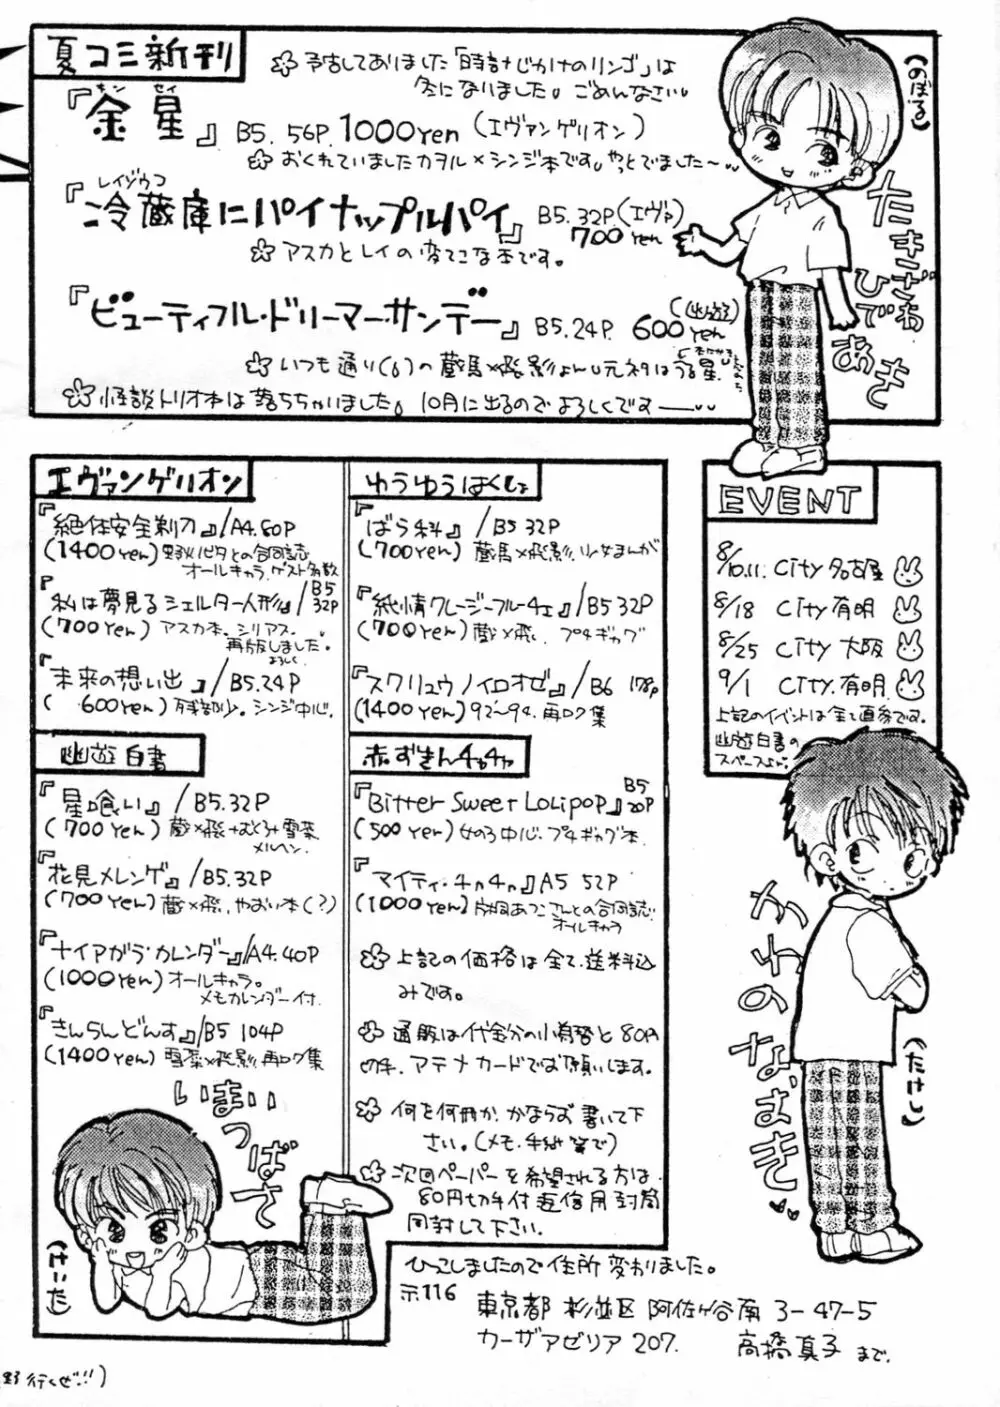 夏コミ新刊
✿予告してありました「時計じかけのリンゴ」は
冬になりました。ごめんなさい。
キン セイ
『金星』B5. 56P. 1000yen (エヴァンゲリオン)
✿おくれていましたカヲル×シンジ本です。やっとでました〜
レイゾウコ
『冷蔵庫にパイナップルパイ』B5.32P.(エヴァ)
700yen
✿アスカとレイの変てこな本です。
『ビューティフル・ドリーマー・サンデー』B5.24P. 600yen
(幽遊)
✿いつも通り(6)の蔵馬×飛影よん 元ネタはうる星
✿怪談トリオ本は落ちちゃいました。10月に出るのでよろしくですー
(のぼる)
たきざわ
ひであき
エヴァンゲリオン
『絶体安全剃刀』/A4.60P
(1400yen) との合同誌
オールキャラ.ゲスト多数
『私は夢見るシェルター人形』/B5
32P
(700yen) アスカ本、シリアス.
再版しました。
よろしく
『未来の想い出』/B5.24P
(600yen) 残部少。シンジ中心.
幽遊白書
『星喰い』/B5.32P
(700yen) 蔵×飛+おとぎ雪菜
メルヘン.
『花見メレンゲ』/B5.32P
(700yen) 蔵×飛. やおい本(?)
『ナイアガラ・カレンダー』/A4.40P
(1000yen) オールキャラ。
メモカレンダー付.
『きんらんどんす』/B5 104P
(1400yen) 雪菜×飛影.再ログ集
いまい
つばさ
(けいた)
ゆうゆうはくしょ
『ばら科』/B5 32P
(700yen) 蔵馬×飛影.少女まんが
『純情クレージーフルーチェ』/B5 32P
(700yen) 蔵×飛. プチギャグ
『スクリュウノイロオゼ』/B6 178p
(1400yen) 92〜94.再ログ集
赤ずきんチャチャ
『Bitter Sweet Lolipop』B5
20P
(500yen) 女の子中心.プチギャグ本.
『マイティ・チャチャ』A5 52P
(1000yen) さんとの合同誌.
オールキャラ
✿上記の価格は全て、送料込
みです。
✿通販は代金分の小為替と80円
切手、アテナカードでお願いします。
✿何を何冊か、かならず書いて下
さい。(メモ.手紙等で)
✿次回ペーパーを希望される方は、
80円切手付返信用封筒
同封して下さい.
EVENT
8/10.11. City 名古屋
8/18 City 有明
8/25 City 大阪
9/1 City.有明.
上記のイベントは全て直参です。
幽遊白書の
スペースよん.
かわの
なぶき
(たけし)
ひっこしましたので住所変わりました。
〒116
東京都 杉並区 阿佐ヶ谷南 3-47-5
カーザアゼリア 207. 高橋真子まで.
行くぜ!!)